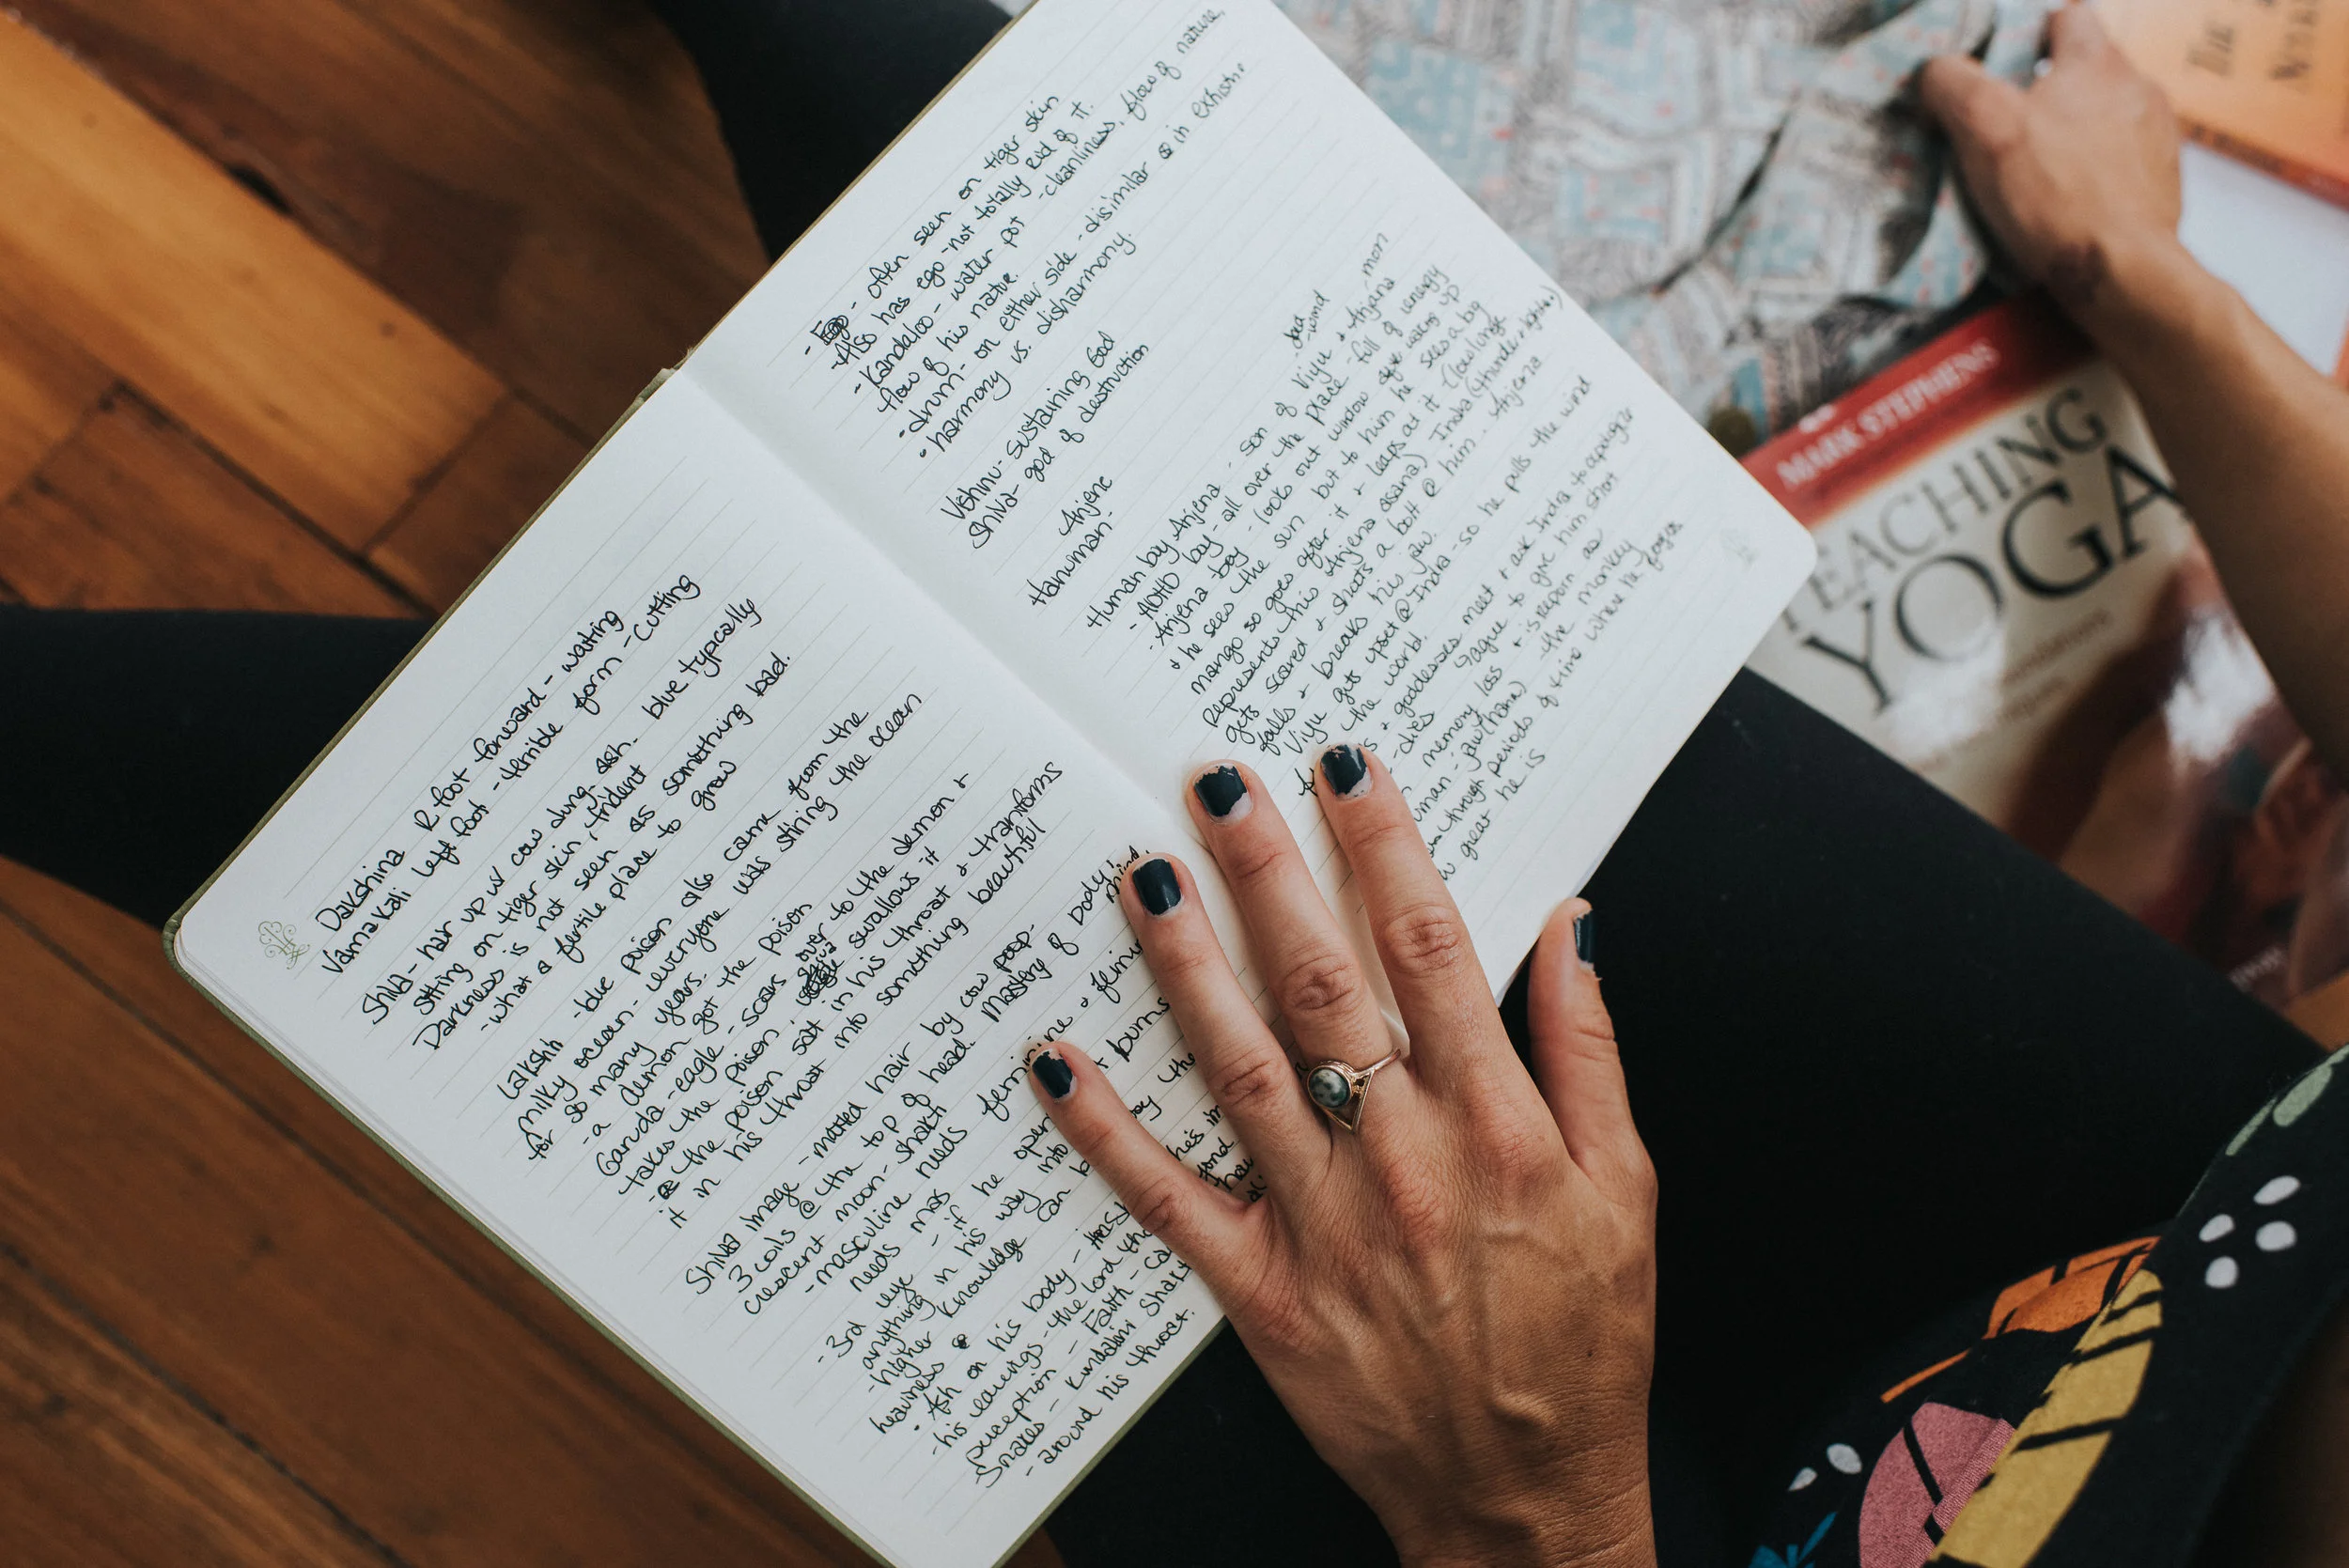 Dakshina R foot forward - waiting
Vama Kali left foot - terrible form - cutting
Shiva - hair up w/ cow dung ash. blue typically
sitting on tiger skin, trident
Darkness is not seen as something bad.
- what a fertile place to grow
Lakshih - blue poison also came from the
milky ocean - everyone was stiring the ocean
for so many years.
- a demon got the poison
Garuda - eagle - soars over to the demon +
takes the poison, swallows it
- the poison sat in his throat + transforms
it in his throat into something beautiful
Shiva image - matted hair by cow poop -
3 coils @ the top of head. Mastery of body, mind,
crescent moon - shakti
- masculine needs feminine & femin
needs mas
- 3rd eye - if he open it burns
anything in his way into
- higher knowledge can b ay the
heaviness
• Ash on his body -
- his leavings - the lord tho
perception - Faith - ca
Snakes - Kundalini Shakt
- around his throat.
- Ego - often seen on tiger skin
- Also has ego - not totally rid of it.
- Kandaloo - water pot - cleanliness, flow of nature,
flow of his native.
• drum - on either side - disimilar as in exhistn.
• harmony vs. disharmony.
Vishnu - sustaining God
Shiva - god of destruction
Anjene
Hanuman -
Human boy Anjena - son of Viyu - wind + Anjana - mom
- ADHD boy - all over the place - full of energy
- Anjena boy - looks out window after waking up
+ he sees the sun but to him he sees a big
mango so goes after it + leaps at it - (low lunge
represents this Anjena asana) Indra (thunder + lights)
gets scared + shoots a bolt @ him... Anjenza
falls + breaks his jaw.
Viyu gets upset @ Indra - so he pulls the wind
the world.
s + goddesses meet + ask Indra to apologize
- dies 7ague to give him short
memory loss + is reborn as
uman - jaw (hana) - the monkey
through periods of time where he forgets
w great he is
MARK STEPHENS
TEACHING
YOGA